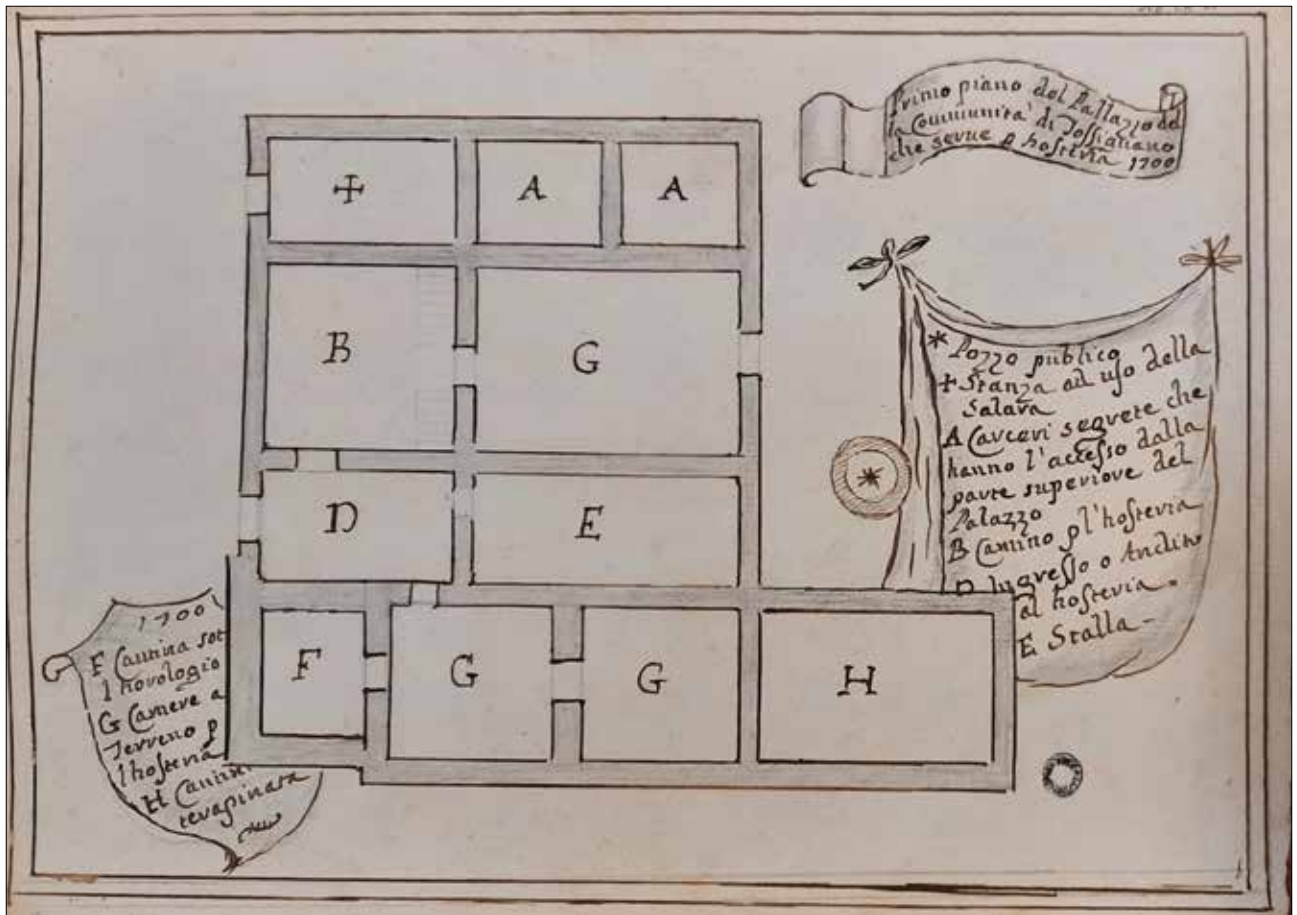 Primo piano del Pallazzo del
la Communità di Tossignano
che serve p hosteria 1700
+
A
A
B
G
D
E
F
G
G
H
* Pozzo publico
+ Stanza ad uso della
Salara
A Carceri segrete che
hanno l'accesso dalla
parte superiore del
Palazzo
B Camino p l'hosteria
D Ingresso o Andito
al hosteria.
E Stalla -
*
1700
F Cantina sot
l horologio
G Camere a
terreno p
l hosteria
H Cantina
terapinata